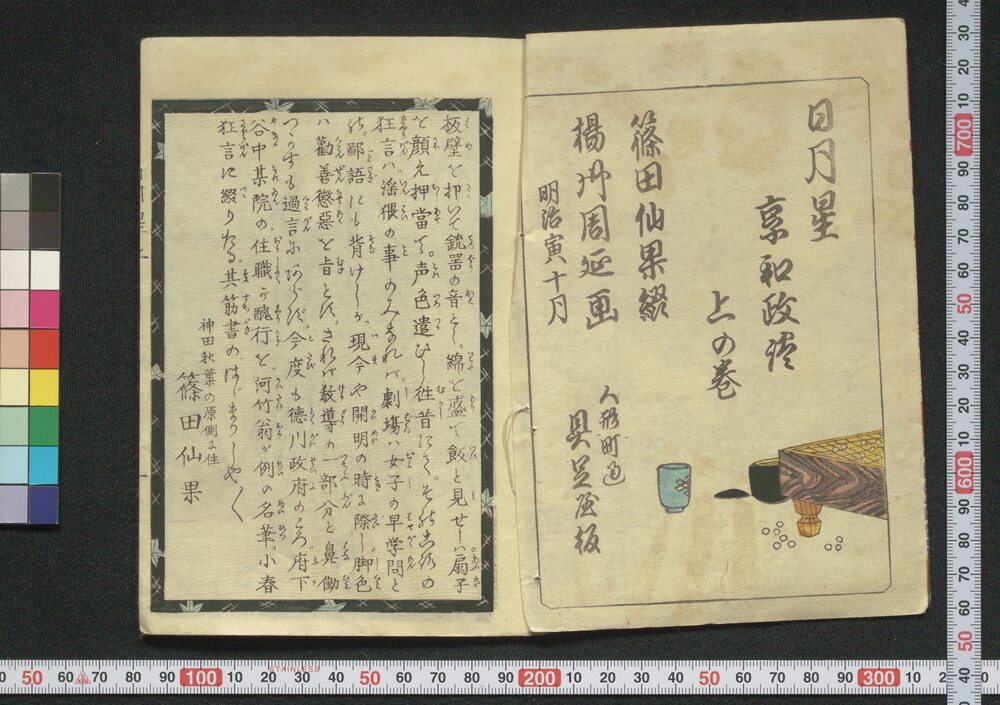 日月星
享和政談
上の巻
篠田仙果綴
楊洲周延画
明治寅十月
人形町通
具足屋板
板壁を押いて銃器の音とし。綿を盛て飯と見せしハ扇子
を顔え押當て。声色遣ひし徃昔にて。
狂言ハ滛猥の事のみなれバ劇塲ハ女子の早学問と
鄙語にも背けしが。現今や開明の時に際し。脚色
ハ勸善懲惡を旨とす。されバ教導の一部分と鼻働
つかするも過言にあらず。今度も徳川政府のころ。府下
谷中某院の住職が醜行を。河竹翁が例の名筆。小春
狂言に綴りたる。其筋書のはじまりしや〱
神田秋葉の原側に住
篠田仙果
STAINLESS